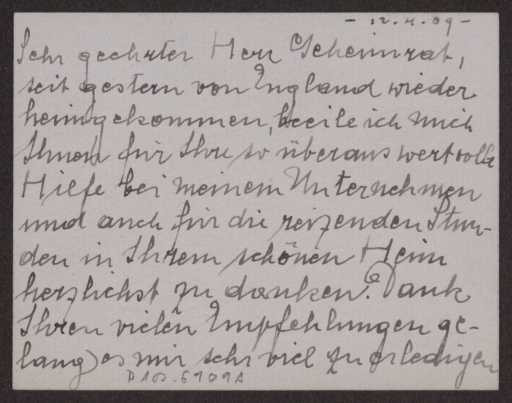 - 12.4.09 -
Sehr geehrter Herr Geheimrat,
seit gestern von England wieder
heimgekommen, beeile ich mich
Ihnen für Ihre so überaus wertvolle
Hilfe bei meinem Unternehmen
und auch für die reizenden Stun-
den in Ihrem schönen Heim
herzlichst zu danken. Dank
Ihren vielen Empfehlungen ge-
lang es mir sehr viel zu erledigen